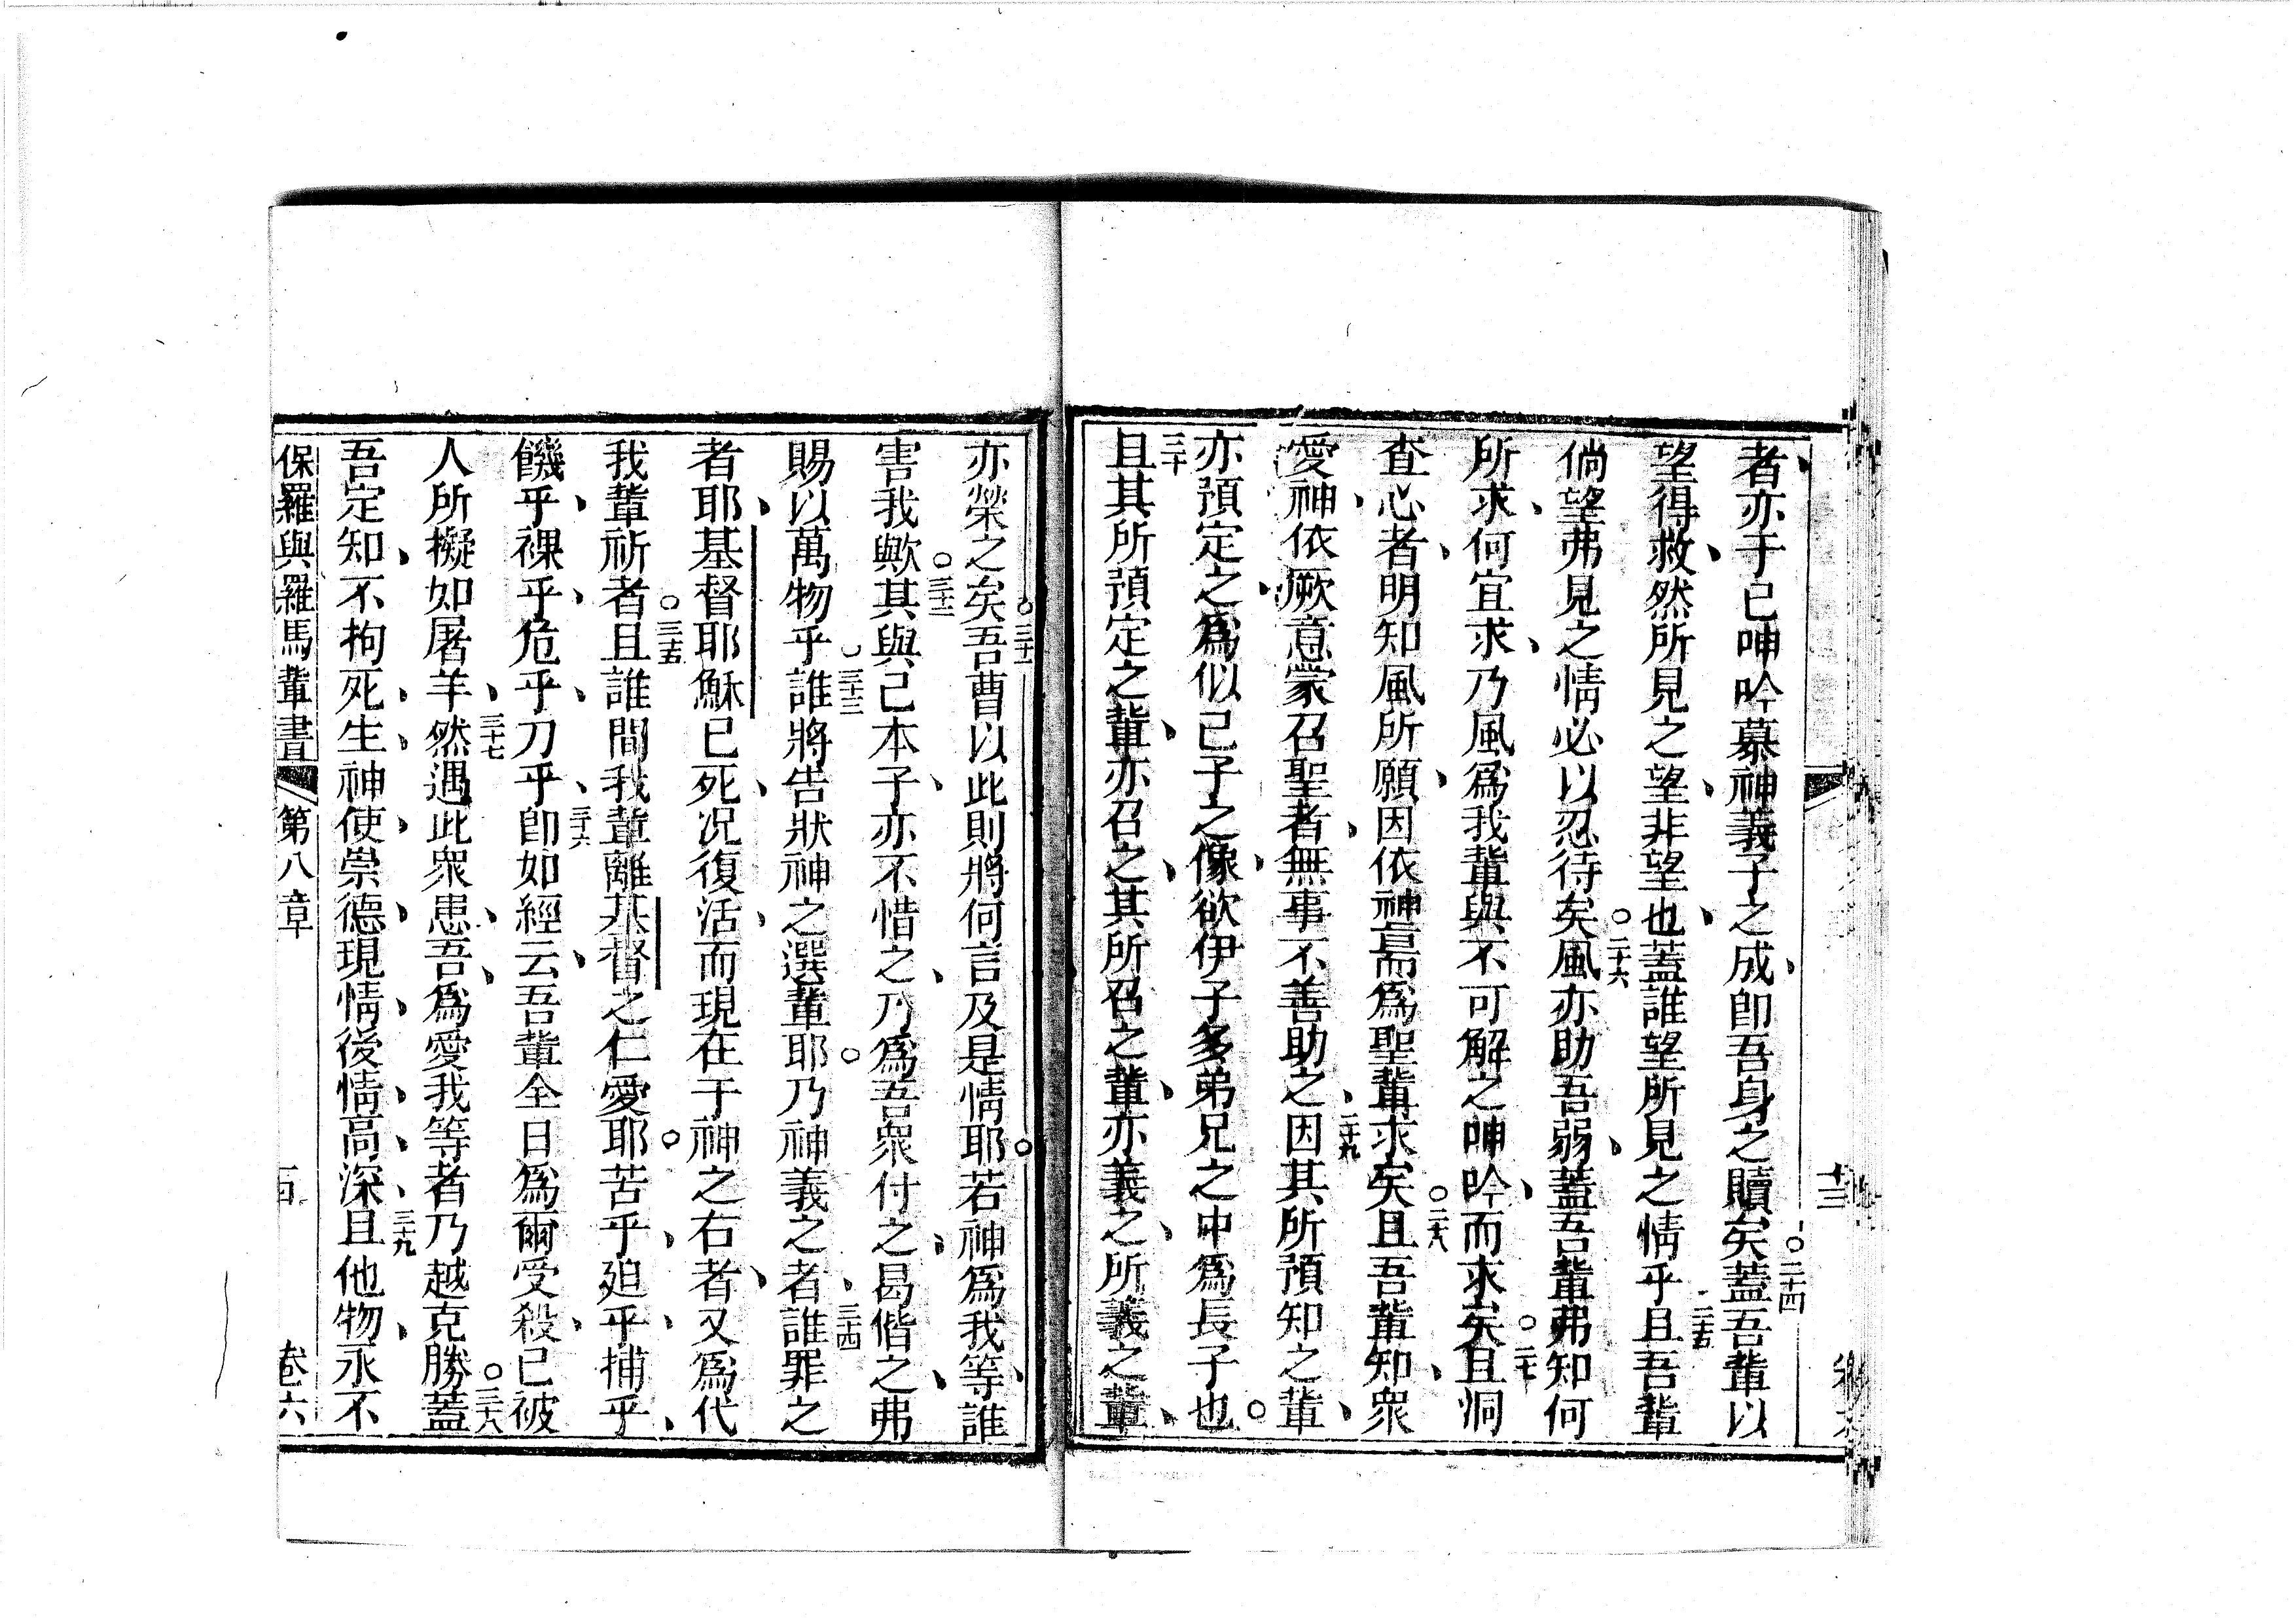 者亦于己呻吟慕神義子之成卽吾身之贖矣○二十四蓋吾輩以
望得救然所見之望非望也蓋誰望所見之情乎二十五且吾輩
倘望弗見之情必以忍待矣○二十六風亦助吾弱蓋吾輩弗知何
所求何宜求乃風爲我輩與不可解之呻吟而求矣○二十七且洞
查心者明知風所願因依神而爲聖輩求矣○二十八且吾輩知衆
愛神依厥意蒙召聖者無事不善助之二十九因其所預知之輩
亦預定之爲似己子之像欲伊子多弟兄之中爲長子也○
三十且其所預定之輩亦召之其所召之輩亦義之所義之輩
亦榮之矣○三十一吾曹以此則將何言及是情耶○若神爲我等誰
害我歟○三十二其與己本子亦不惜之乃爲吾衆付之曷偕之弗
賜以萬物乎○三十三誰將告狀神之選輩耶○乃神義之者三十四誰罪之
者耶基督耶穌已死况復活而現在于神之右者又爲代
我輩祈者○三十五且誰間我輩離基督之仁愛耶○苦乎廹乎捕乎
饑乎裸乎危乎刀乎三十六卽如經云吾輩全日爲爾受殺已被
人所擬如屠羊三十七然遇此衆患吾爲愛我等者乃越克勝○三十八蓋
吾定知不拘死生神使崇德現情後情高深三十九且他物永不
保羅與羅馬輩書 第八章 百 卷六